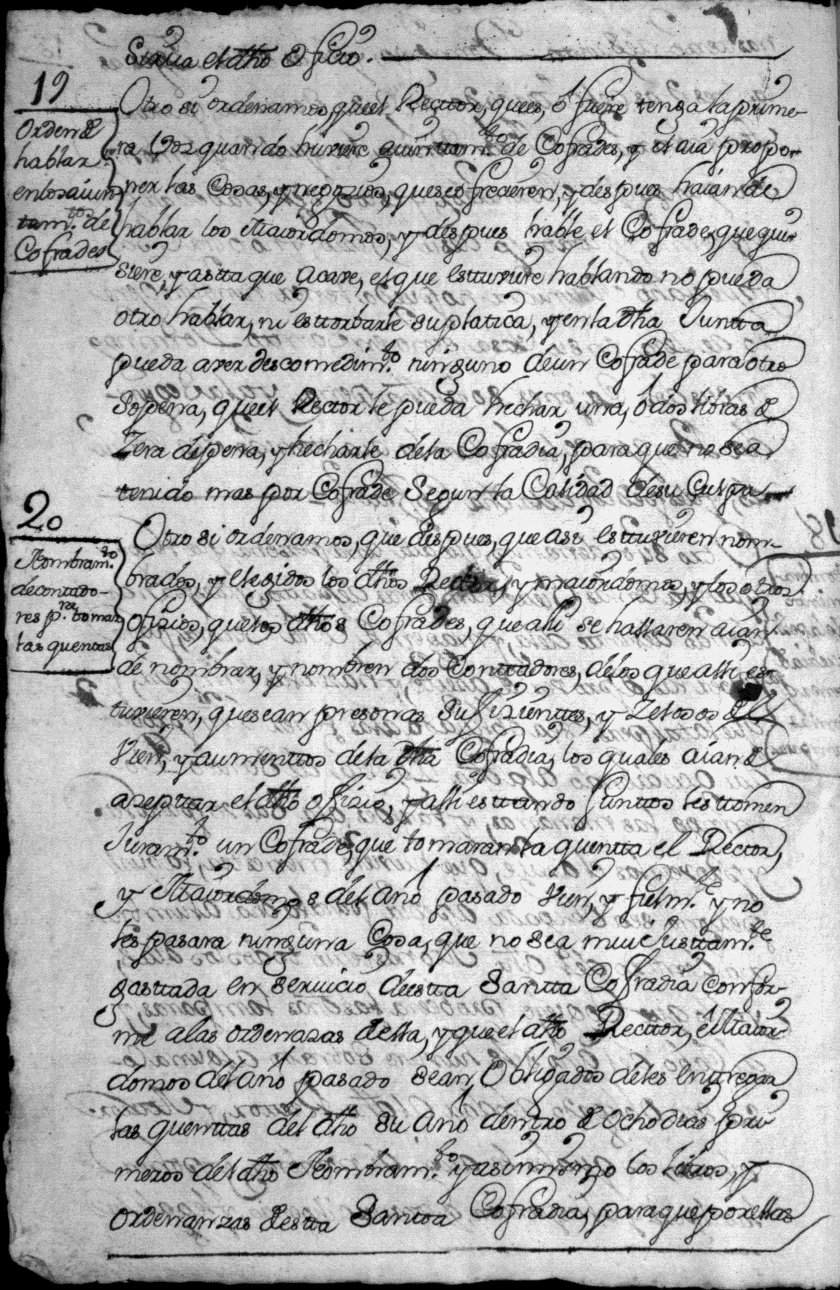 el dho ofizio.
19
Orden de
hablar
en los aiun
tam.tos de
Cofrades
Otro si ordenamos, que el Recttor, que es, ó fuere tenga la prime-
ra Voz quando huviere aiunttam.to de Cofrades, y el aia propo-
ner las Cosas, y negozios, que se ofrecieren, y despues haian de
hablar los Maiordomos, y despues hable el Cofrade, que qui-
siere, y astta que acave, el que esttuviere hablando no pueda
otro hablar, ni esttorbarle su platica, y en la dha Juntta
pueda aver descomedim.to ninguno de un Cofrade para otro
Sopena, que el Rector le pueda hechar una, ó dos libras de
Zera de pena, y hecharle de la Cofradia, para que no sea
tenido mas por Cofrade Segun la Calidad de su Culpa
20
Nombram.to
de contado-
res p.ra tomar
las quentas
Otro si ordenamos, que despues, que asi esttuvieren nom-
brados, y elegidos los dhos Rector, y maiordomos, y los otros
ofizios, que los dhos Cofrades, que alli se hallaren aian
de nombrar, y nombren dos Conttadores, de los que alli es-
tuvieren, que sean presonas Sufizienttes, y Zelosos de el
Vien, y aumenttos de la dha Cofradia, los quales aian de
azepttar el dho ofizio, y alli esttando Junttos les ttomen
Juram.to un Cofrade, que tomaran la quentta el Rector,
y Maiordomos del año pasado vien, y fielm.te y no
les pasara ninguna Cosa, que no sea mui Justtam.te
gasttada en servicio de estta Santta Cofradia confor-
me a las ordenazas della, y que el dho Recttor, e Maior-
domos del año pasado sean, Obligados de les enttregar
las quenttas del dho su año dentro de ocho dias pri-
meros del dho Nombram.to y asimismo los libros, y
ordenanzas de estta Santta Cofradia, para que por ellas